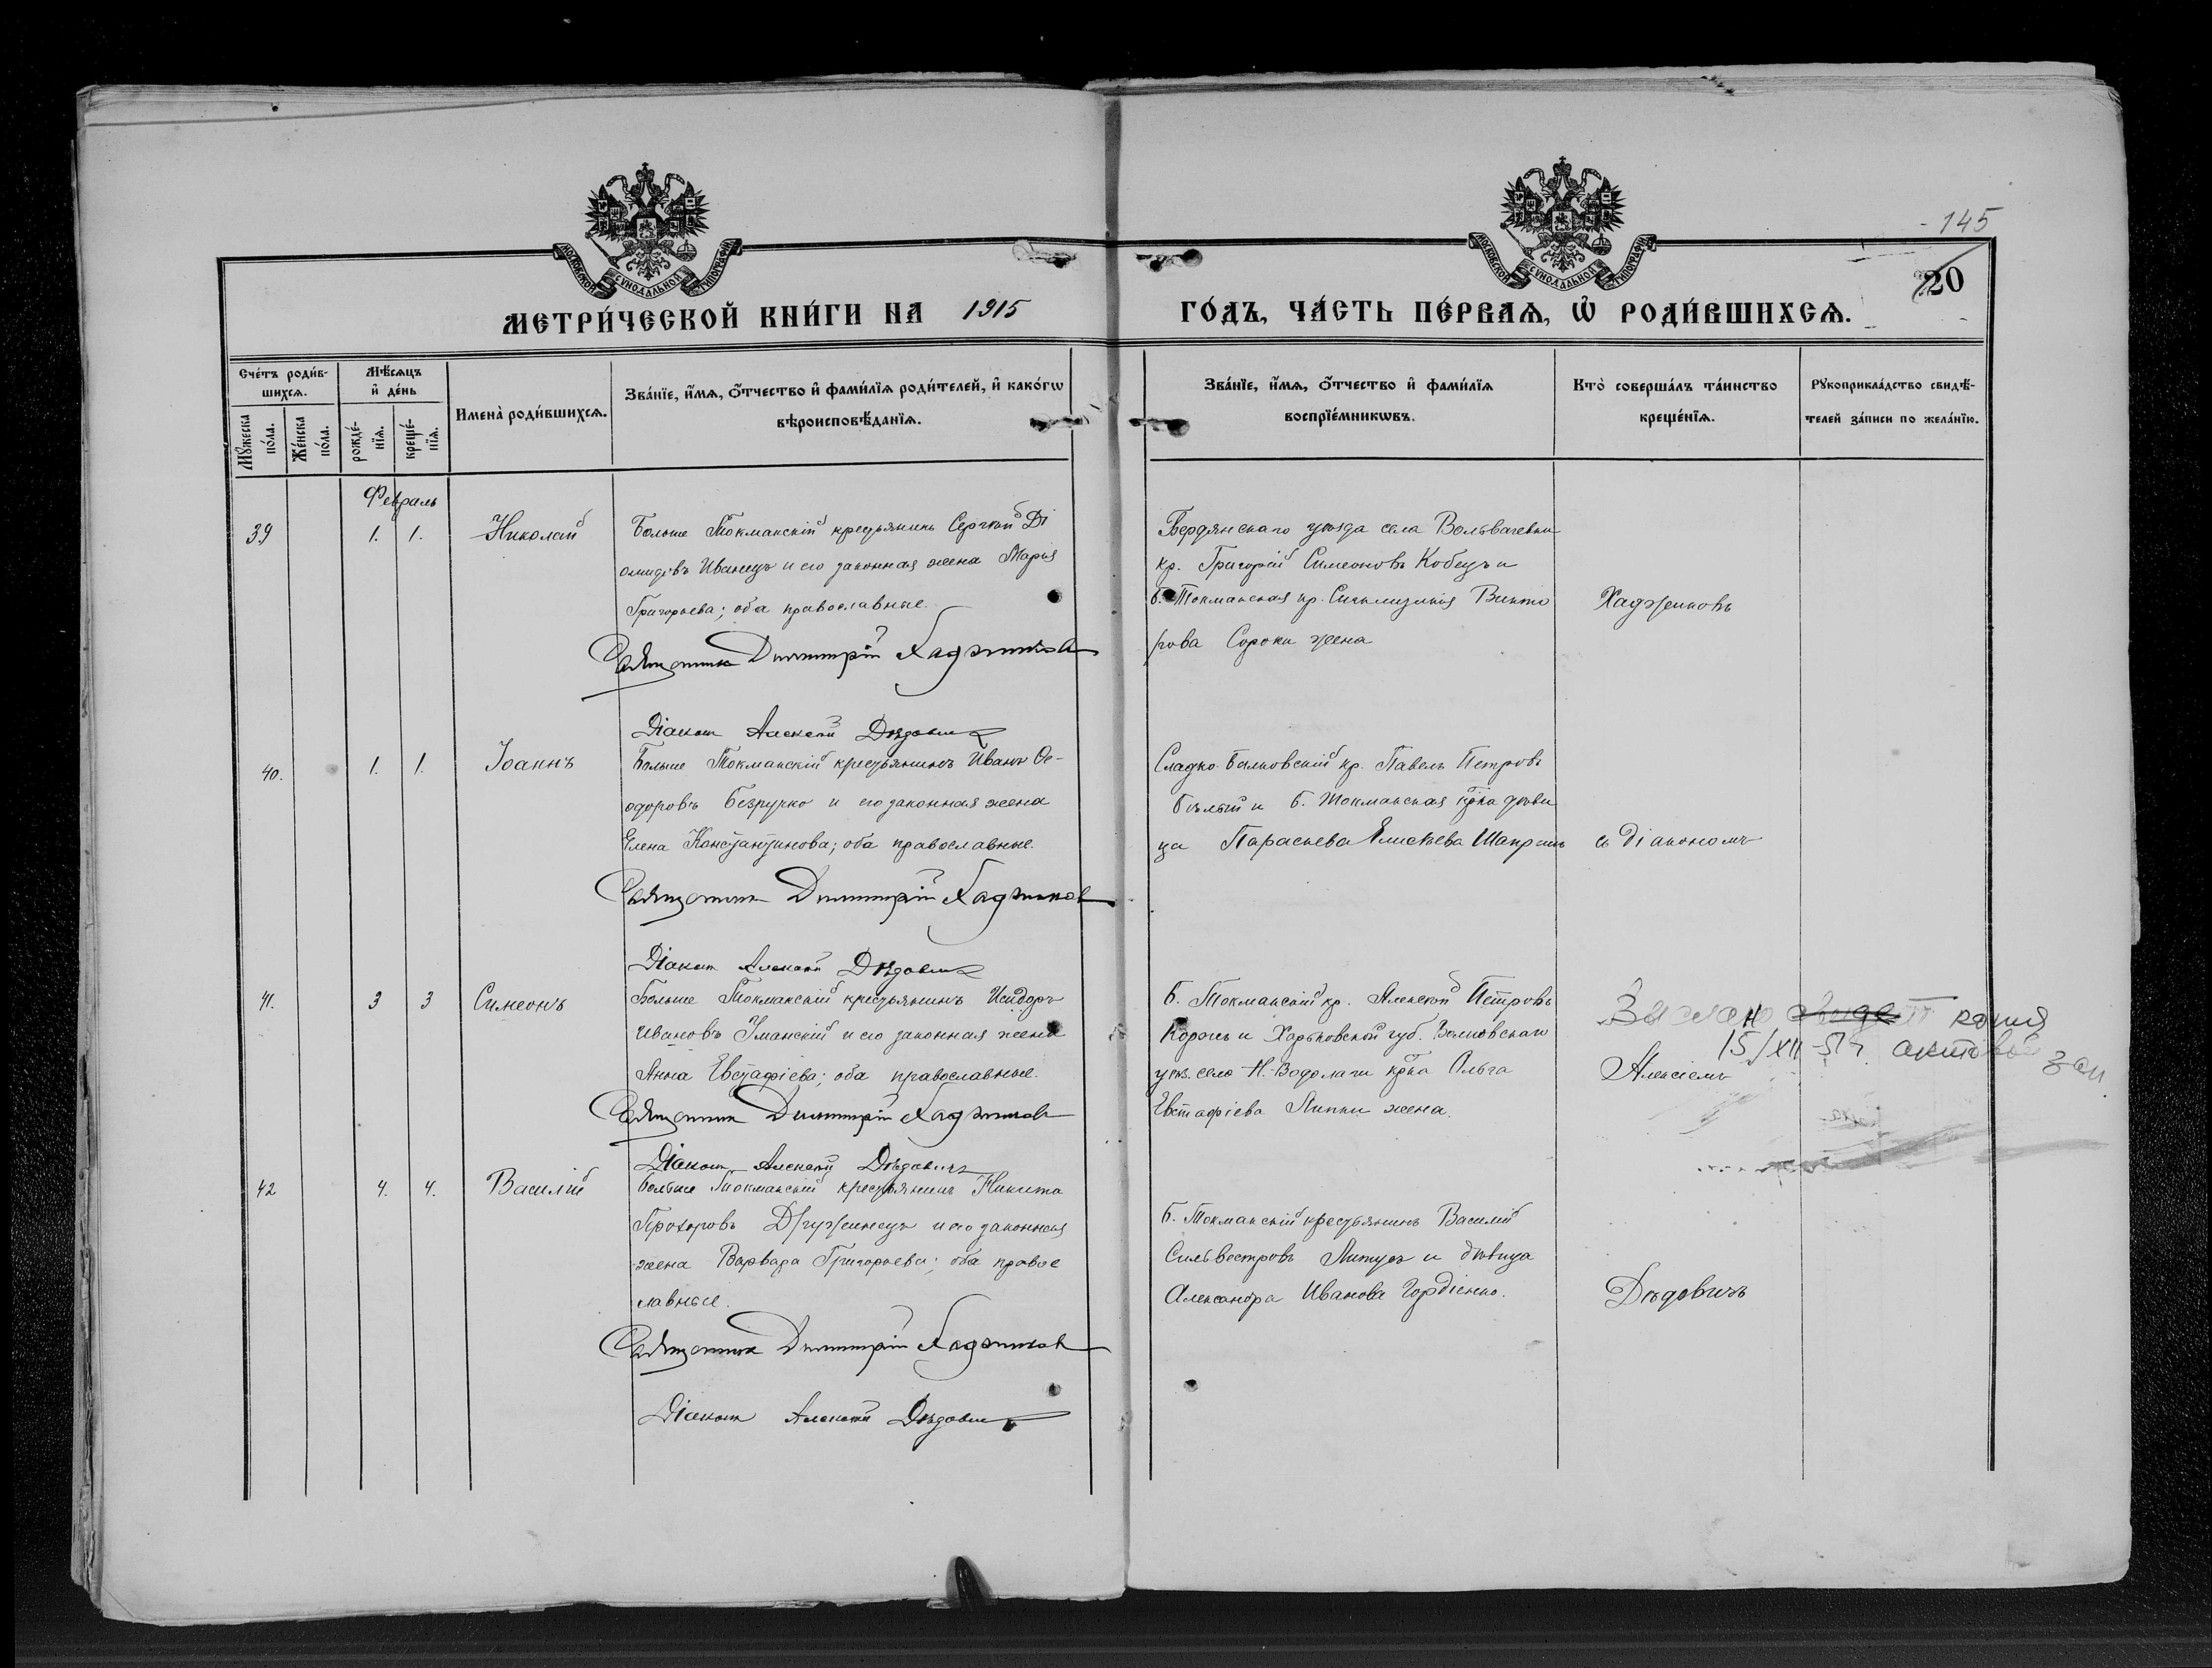 145
20
МОСКОВСКОЙ СѴНОДАЛЬНОЙ ТИПОГРАФІИ
МОСКОВСКОЙ СѴНОДАЛЬНОЙ ТИПОГРАФІИ
МЕТРИ́ЧЕСКОЙ КНИ́ГИ НА 1915 ГО́ДЪ, ЧА́СТЬ ПЕ́РВАѦ, Ѡ҆ РОДИ́ВШИХСѦ.
Сче́тъ роди́в-
шихсѧ.
Мꙋ́жеска по́ла.
Же́нска по́ла.
Мѣ́сѧцъ
и҆ де́нь
рожде́-
нїѧ.
креще́-
нїѧ.
Имена̀ роди́вшихсѧ.
Зва́нїе, и҆́мѧ, ѻ҆́тчество и҆ фами́лїѧ роди́телей, и҆ како́гѡ
вѣроисповѣ́данїѧ.
Зва́нїе, и҆́мѧ, ѻ҆́тчество и҆ фами́лїѧ
воспрїе́мникѡвъ.
Кто̀ соверша́лъ та́инство
креще́нїѧ.
Рꙋкоприкла́дство свидѣ́-
телей за́писи по жела́нїю.
Февраль
39 1. 1. Николай
Больше Токманскій крестьянинъ Сергѣй Ді
омидовъ Иванецъ и его законная жена Марія
Григорьева; оба православные.
Священникъ Димитрій Хаджиновъ
Діаконъ Алексѣй Дѣдовичъ
Бердянскаго уѣзда села Вольвачевки
кр. Григорій Симеоновъ Кобецъ и
Б. Токманская кр. Синклитикія Викто
рова Сороки жена
Хаджиновъ
40. 1. 1. Іоаннъ
Больше Токманскій крестьянинъ Иванъ Ѳе-
одоровъ Безручко и его законная жена
Елена Константинова; оба православные.
Священникъ Димитрій Хаджиновъ
Діаконъ Алексѣй Дѣдовичъ
Сладко-Балковскій кр. Павелъ Петровъ
Бѣлый и Б. Токманская кр-ка дѣви
ца Параскева Елисѣева
съ Діакономъ
41. 3 3 Симеонъ
Больше Токманскій крестьянинъ Исидоръ
Ивановъ Уманскій и его законная жена
Анна Евстафіева; оба православные.
Священникъ Димитрій Хаджиновъ
Діаконъ Алексѣй Дѣдовичъ
Б. Токманскій кр. Алексѣй Петровъ
Король и Харьковской губ. Валковскаго
уѣз. село Н.-Водолаги кр-ка Ольга
Евстафіева Липки жена.
Выслано свидет копия
15/XII-51г. актовой зап
Алексіемъ
42 4. 4. Василій
Больше Токманскій крестьянинъ Никита
Прохоровъ Дружинецъ и его законная
жена Варвара Григорьева; оба правос
лавные.
Священникъ Димитрій Хаджиновъ
Діаконъ Алексѣй Дѣдовичъ
Б. Токманскій крестьянинъ Василій
Сильвестровъ Литусъ и дѣвица
Александра Иванова Гордіенко.
Дѣдовичъ